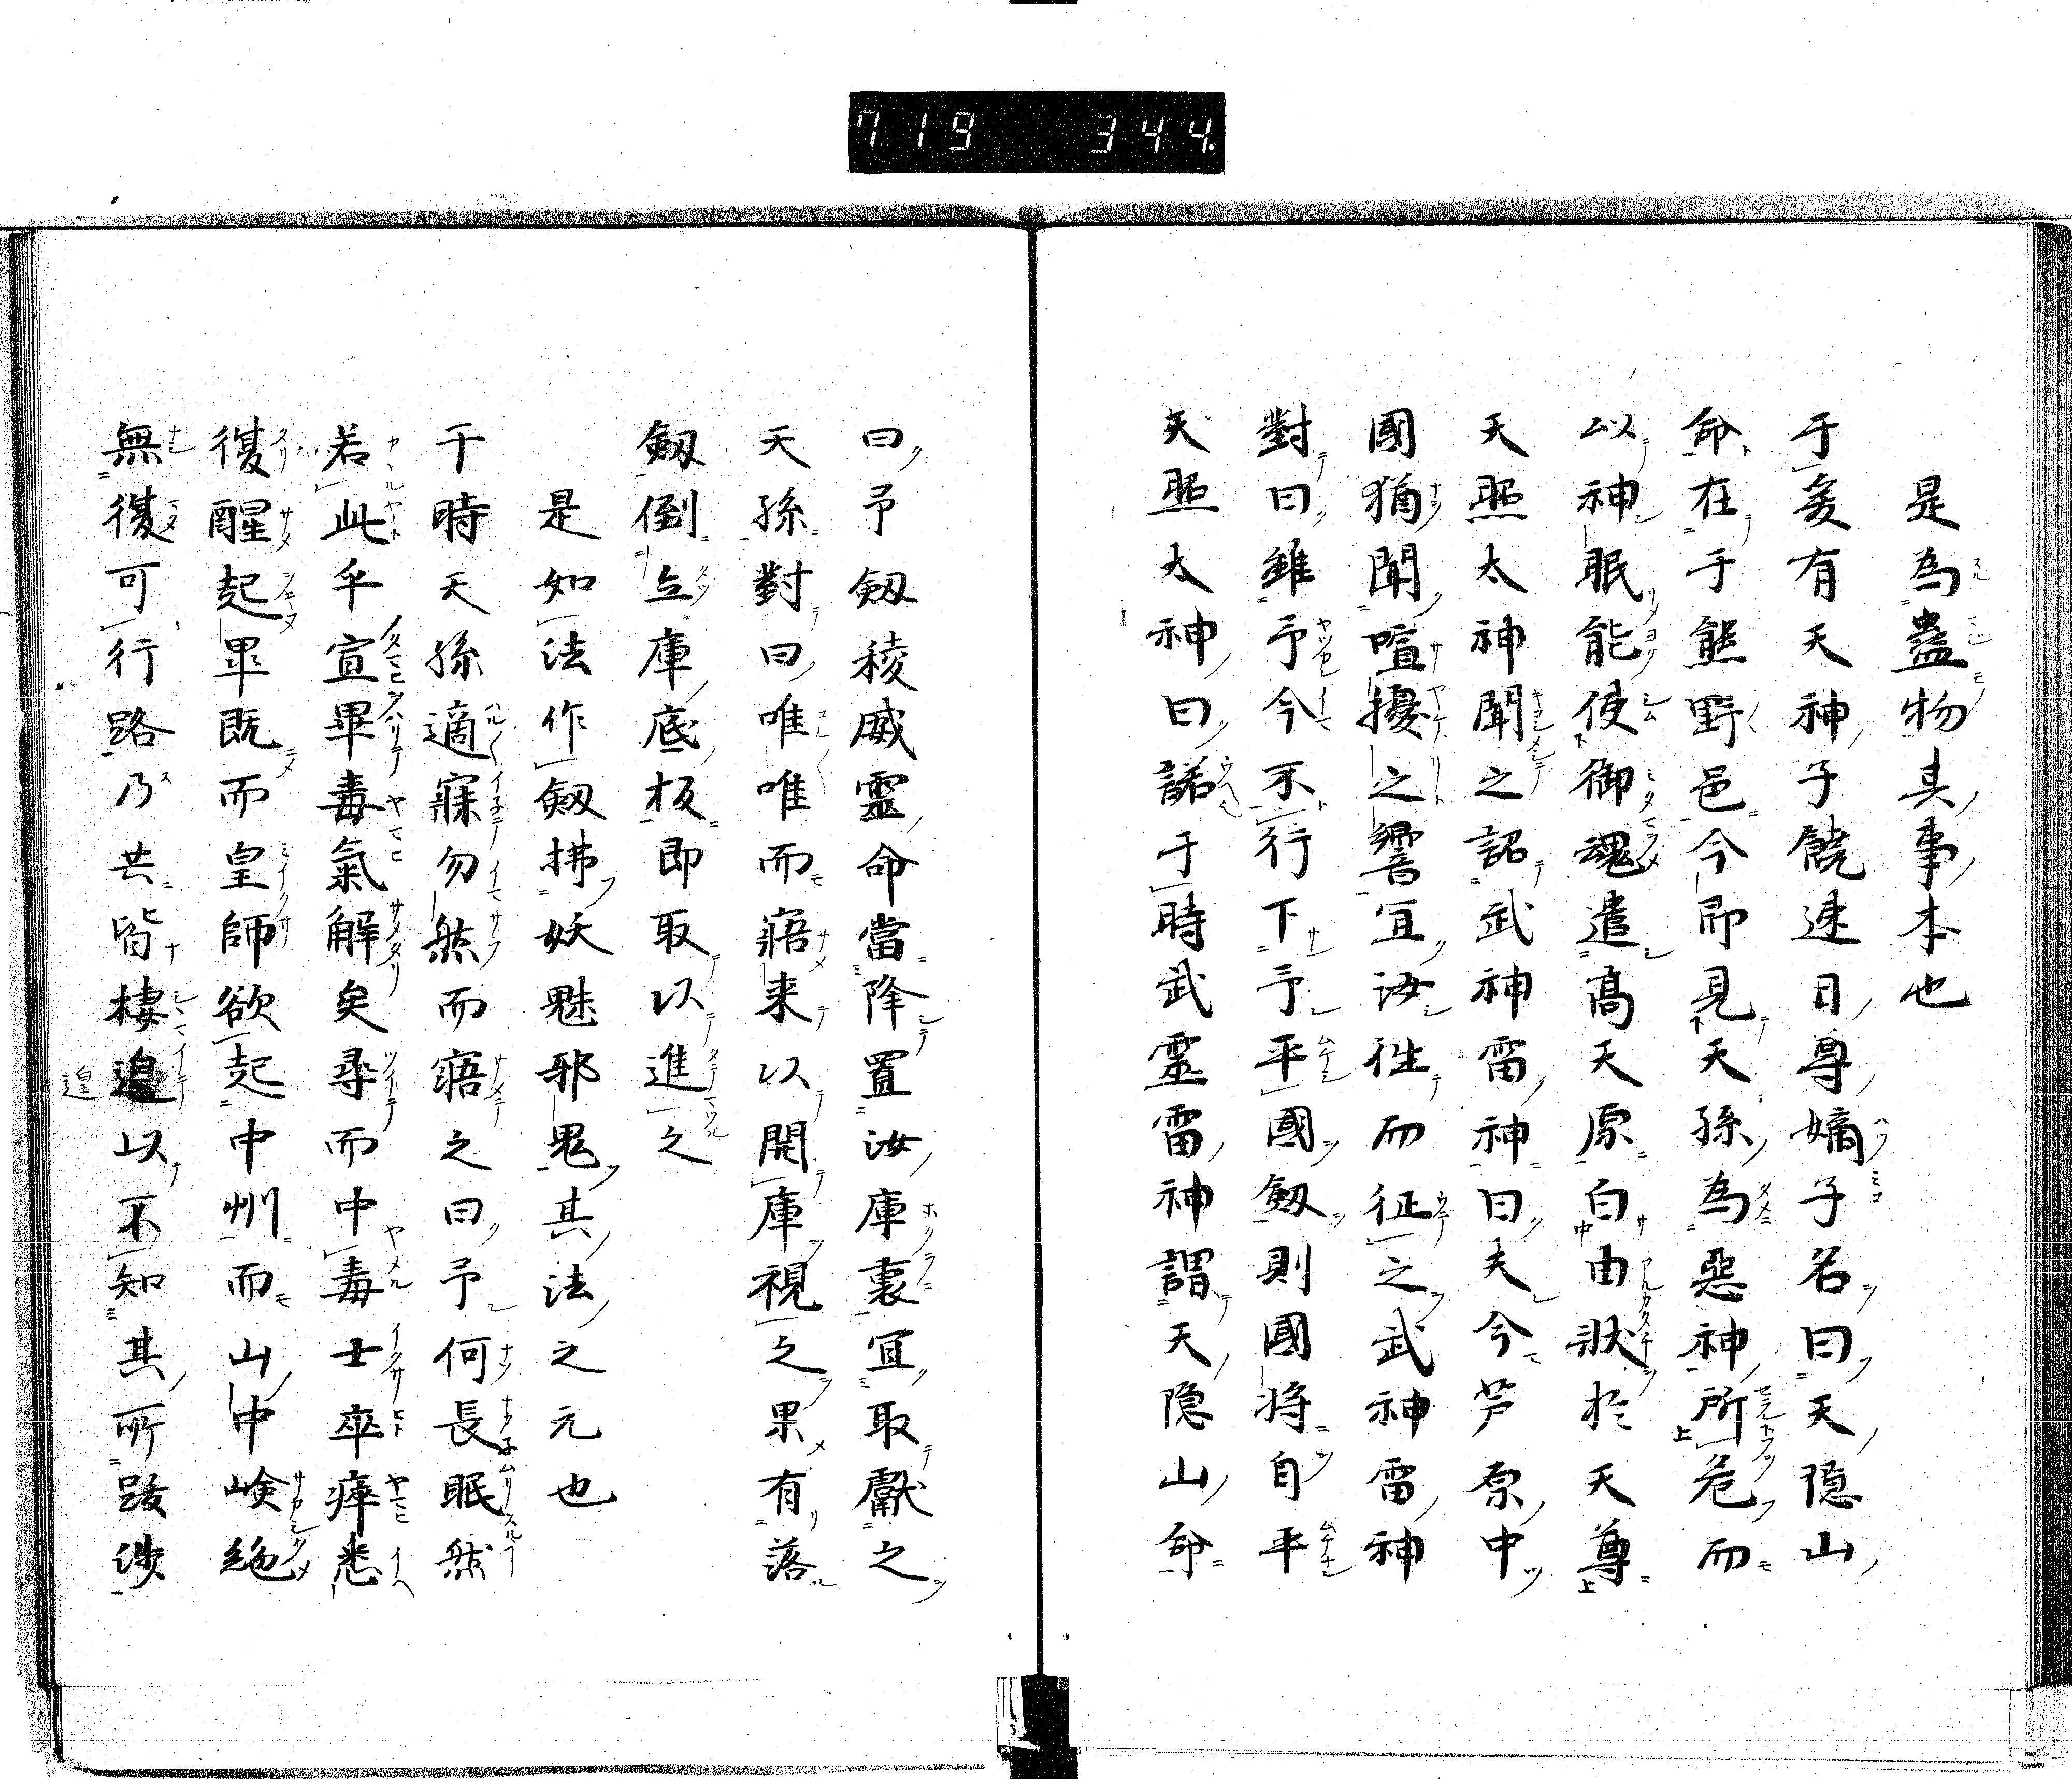 719 344.
是為蠱物其事本也
于爰有天神子饒速日尊嫡子名曰天隠山
命在于熊野邑今即見天孫為惡神所危而
以神眠能使御魂遣髙天原白由狀於天尊
天照太神聞之詔武神雷神曰夫今芦原中
國猶聞喧擾之響宜汝徃而征之武神雷神
對曰雖予今不行下予平國劔則國将自平
天照太神曰諾于時武靈雷神謂天隐山命
曰予劔稜威靈命當降置汝庫裏宜取獻之
天孫對曰唯唯而寤来以開庫視之果有落
劔倒立庫底板即取以進之
是如法作劔拂妖魅邪鬼其法之元也
于時天孫適寐勿然而寤之曰予何長眠然
若此乎宣畢毒氣解矣尋而中毒士卒瘁悉
復醒起畢既而皇師欲起中州而山中嶮絶
無復可行路乃共皆棲遑以不知其所跋渉
遑